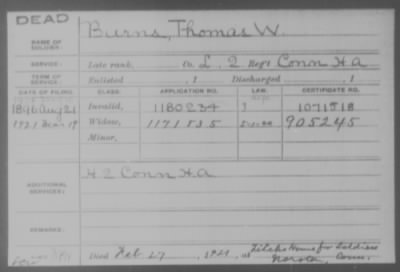 DEAD
NAME OF SOLDIER: Burns, Thomas W.
SERVICE: Late rank, Co. L, 2 Reg't Conn H A
TERM OF SERVICE: Enlisted , 1 Discharged , 1
DATE OF FILING. CLASS. APPLICATION NO. LAW. CERTIFICATE NO.
1896 Aug 21 Invalid, 1180234 1071518
1921 Mar 19 Widow, 1171535 905245
Minor,
ADDITIONAL SERVICES: H 2 Conn H A
REMARKS:
Died Feb 27, 1921, at Fitch's Home for Soldiers
Noroton, Conn.